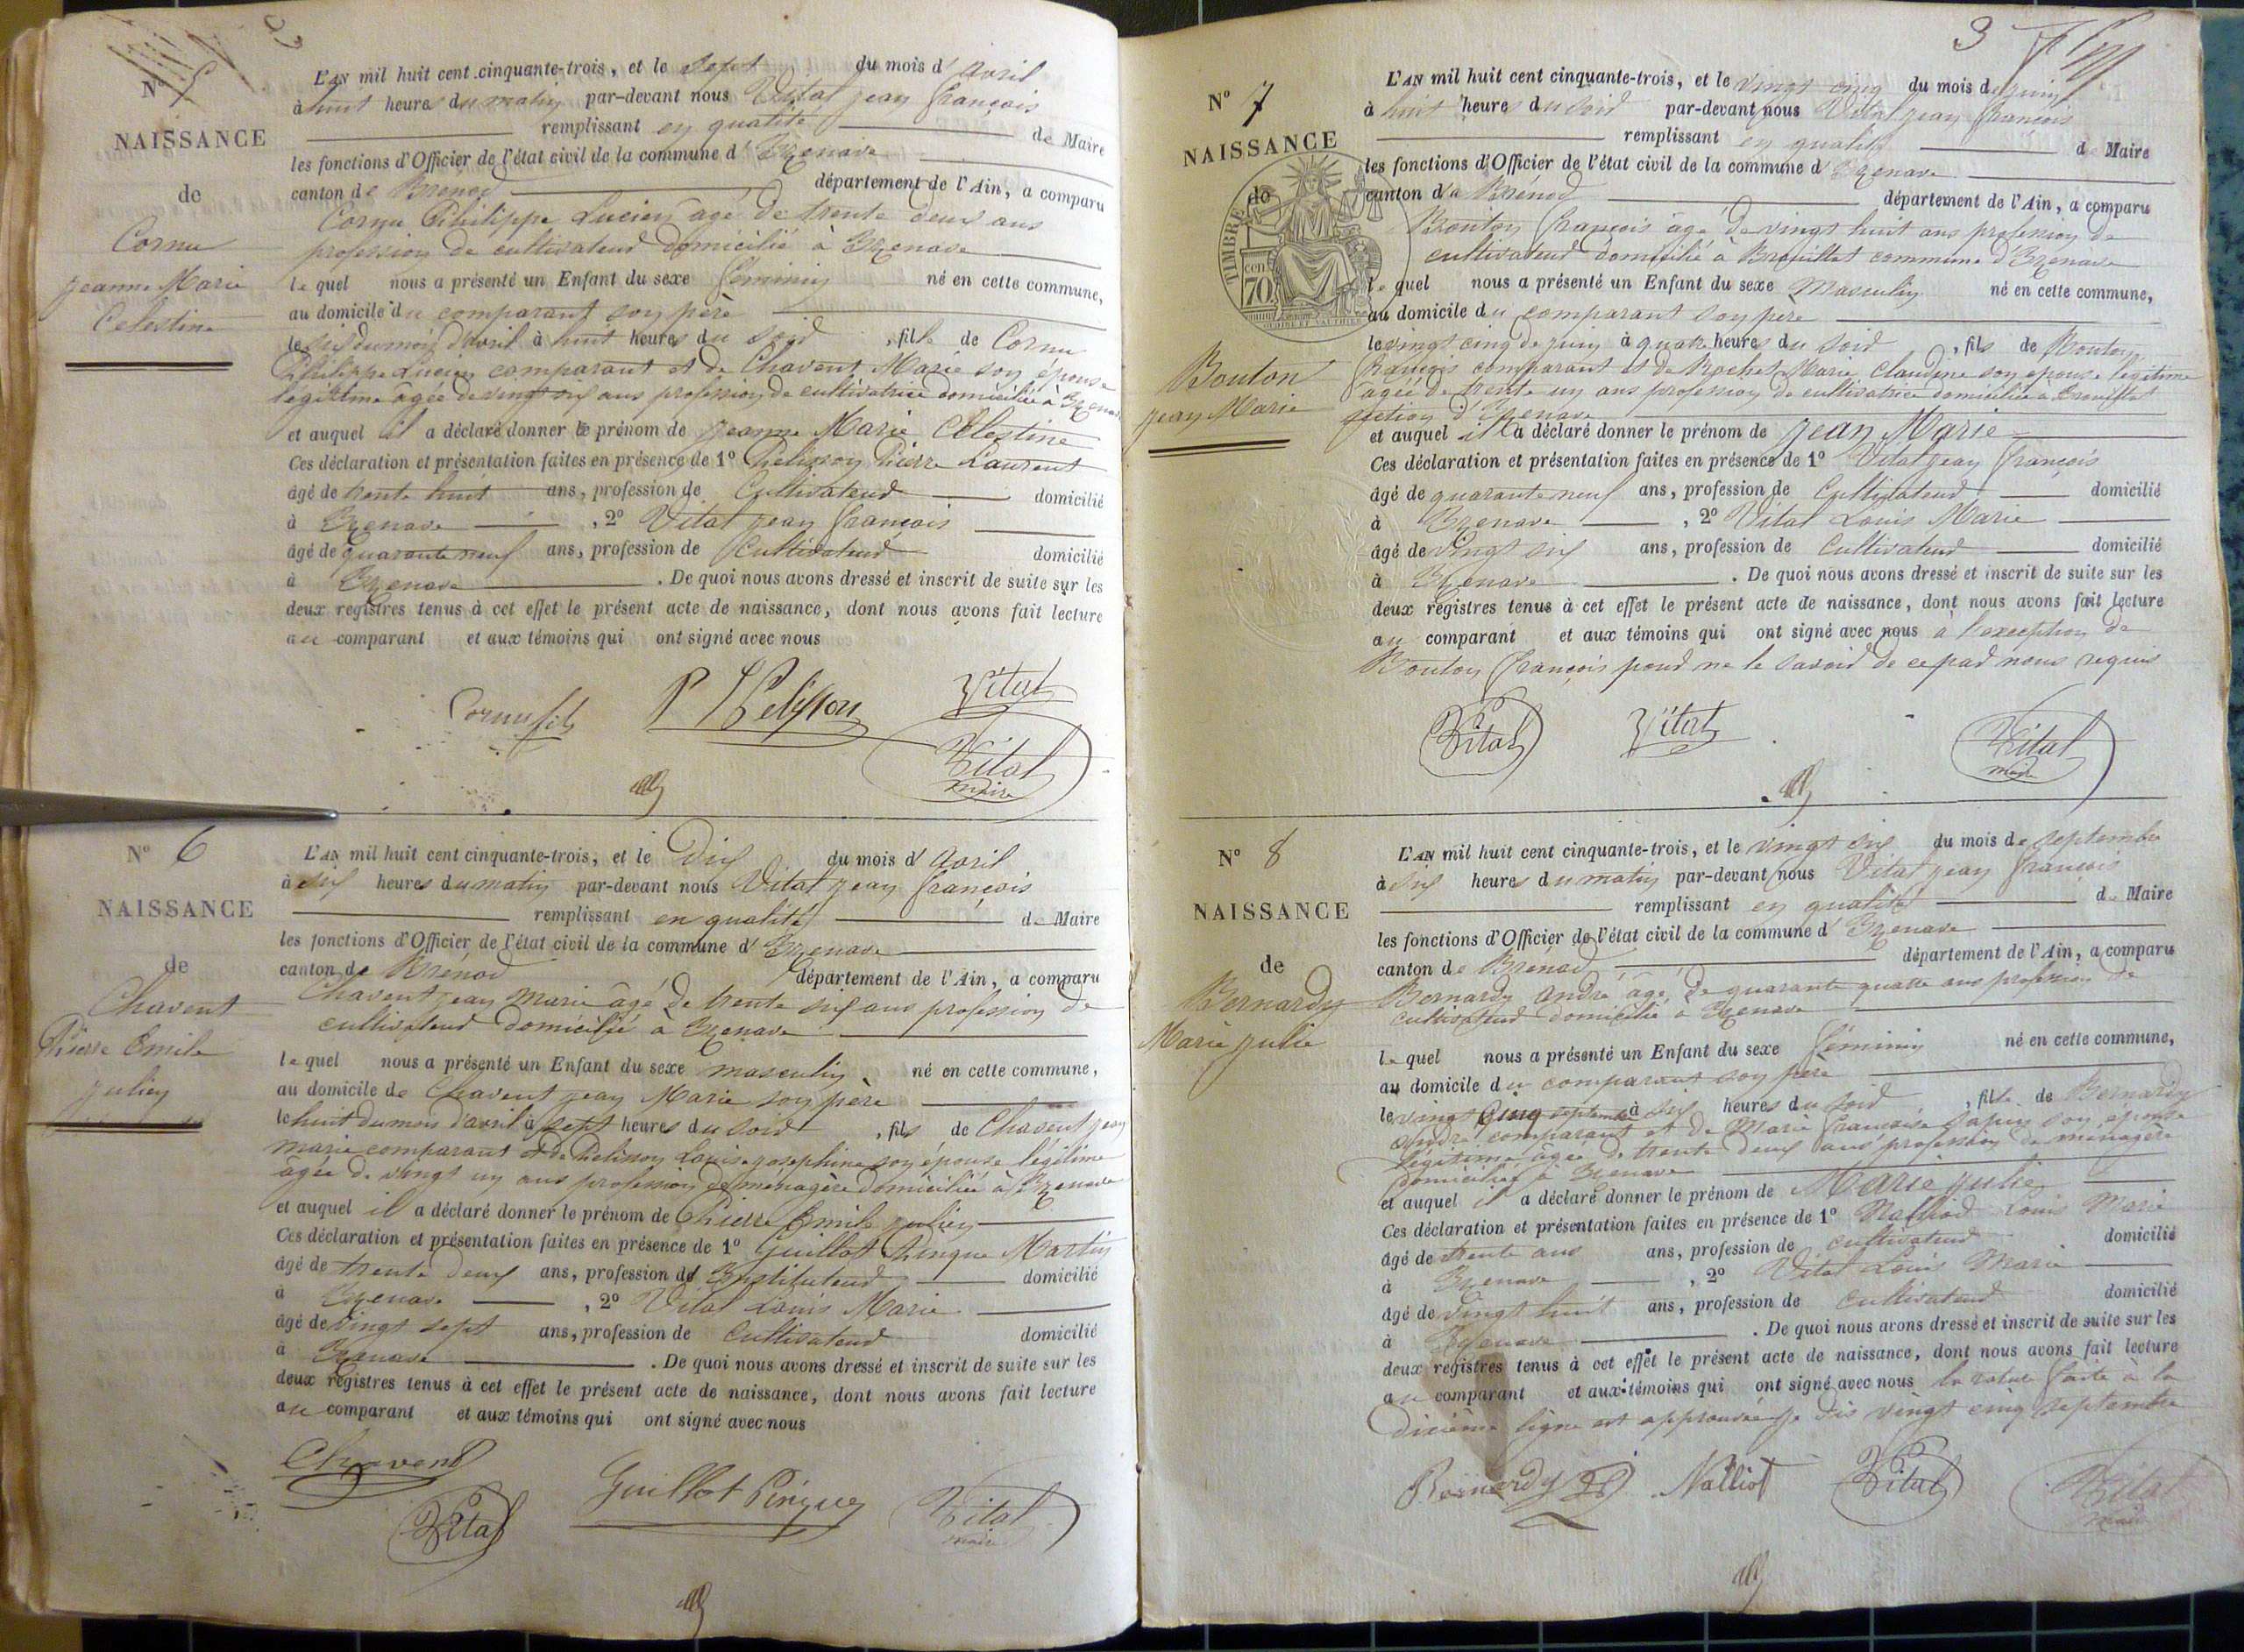 N° 5
NAISSANCE
de
Cornu
Jeanne Marie
Celestine
L'AN mil huit cent cinquante-trois, et le Sept du mois d'avril
à huit heures du matin par-devant nous Vital jean françois
remplissant en qualité de Maire
les fonctions d'Officier de l'état civil de la commune d'Izenave
canton de Brenod département de l'Ain, a comparu
Cornu Philippe Lucien âgé de trente deux ans
profession de cultivateur domicilié à Izenave
lequel nous a présenté un Enfant du sexe féminin né en cette commune,
au domicile du comparant son père
le six du mois d'avril à huit heures du soir, fille de Cornu
Philippe Lucien comparant et de Chavent Marie son épouse
légitime âgée de vingt six ans profession de cultivatrice domiciliée à Izenave
et auquel il a déclaré donner le prénom de Jeanne Marie Célestine
Ces déclaration et présentation faites en présence de 1° Pelisson Pierre Laurent
âgé de trente huit ans, profession de Cultivateur domicilié
à Izenave, 2° Vital jean françois
âgé de quarante neuf ans, profession de Cultivateur domicilié
à Izenave. De quoi nous avons dressé et inscrit de suite sur les
deux registres tenus à cet effet le présent acte de naissance, dont nous avons fait lecture
au comparant et aux témoins qui ont signé avec nous
Cornu fils P L Pelisson Vital
Vital
maire
N° 6
NAISSANCE
de
Chavent
Pierre Emile
julien
L'AN mil huit cent cinquante-trois, et le Dix du mois d'avril
à six heures du matin par-devant nous Vital jean françois
remplissant en qualité de Maire
les fonctions d'Officier de l'état civil de la commune d'Izenave
canton de Brénod département de l'Ain, a comparu
Chavent jean marie âgé de trente six ans profession de
cultivateur domicilié à Izenave
lequel nous a présenté un Enfant du sexe masculin né en cette commune,
au domicile de Chavent jean Marie son père
le huit du mois d'avril à sept heures du soir, fils de Chavent jean
marie comparant et de Pelisson Louise josephine son épouse légitime
âgée de vingt un ans profession de ménagère domiciliée à Izenave
et auquel il a déclaré donner le prénom de Pierre Emile julien
Ces déclaration et présentation faites en présence de 1° Guillot Pingue Martin
âgé de trente deux ans, profession de Instituteur domicilié
à Izenave, 2° Vital Louis Marie
âgé de vingt sept ans, profession de Cultivateur domicilié
à Izenave. De quoi nous avons dressé et inscrit de suite sur les
deux registres tenus à cet effet le présent acte de naissance, dont nous avons fait lecture
au comparant et aux témoins qui ont signé avec nous
Chavent
Vital Guillot Pingue Vital
maire
3
N° 7
NAISSANCE
de
TIMBRE
cen
70
Bouton
jean Marie
L'AN mil huit cent cinquante-trois, et le vingt cinq du mois de juin
à huit heures du soir par-devant nous Vital jean françois
remplissant en qualité de Maire
les fonctions d'Officier de l'état civil de la commune d'Izenave
canton de Brénod département de l'Ain, a comparu
Bouton françois âgé de vingt huit ans profession de
cultivateur domicilié à Brouillat commune d'Izenave
lequel nous a présenté un Enfant du sexe Masculin né en cette commune,
au domicile du comparant son père
le vingt cinq de juin à quatre heures du soir, fils de Bouton
françois comparant et de Rochet Marie Claudine son épouse légitime
âgée de trente un ans profession de cultivatrice domiciliée à Brouillat
section d'Izenave
et auquel il a déclaré donner le prénom de jean Marie
Ces déclaration et présentation faites en présence de 1° Vital jean françois
âgé de quarante neuf ans, profession de Cultivateur domicilié
à Izenave, 2° Vital Louis Marie
âgé de vingt six ans, profession de Cultivateur domicilié
à Izenave. De quoi nous avons dressé et inscrit de suite sur les
deux registres tenus à cet effet le présent acte de naissance, dont nous avons fait lecture
au comparant et aux témoins qui ont signé avec nous à l'exception de
Bouton françois pour ne le savoir de ce par nous requis
Vital Vital Vital
maire
N° 8
NAISSANCE
de
Bernardy
Marie julie
L'AN mil huit cent cinquante-trois, et le vingt six du mois de septembre
à six heures du matin par-devant nous Vital jean françois
remplissant en qualité de Maire
les fonctions d'Officier de l'état civil de la commune d'Izenave
canton de Brénod département de l'Ain, a comparu
Bernardy andré âgé de quarante quatre ans profession de
cultivateur domicilié à Izenave
lequel nous a présenté un Enfant du sexe féminin né en cette commune,
au domicile du comparant son père
le vingt cinq septembre à six heures du soir, fille de Bernardy
andré comparant et de Marie françoise Sapin son épouse
légitime âgée de trente deux ans profession de ménagère
domiciliée à Izenave
et auquel il a déclaré donner le prénom de Marie julie
Ces déclaration et présentation faites en présence de 1° Nalliod Louis Marie
âgé de trente ans ans, profession de cultivateur domicilié
à Izenave, 2° Vital Louis Marie
âgé de vingt huit ans, profession de Cultivateur domicilié
à Izenave. De quoi nous avons dressé et inscrit de suite sur les
deux registres tenus à cet effet le présent acte de naissance, dont nous avons fait lecture
au comparant et aux témoins qui ont signé avec nous la rature faite à la
dixième ligne est approuvée je dis vingt cinq septembre
Bernardy Nalliod Vital Vital
maire